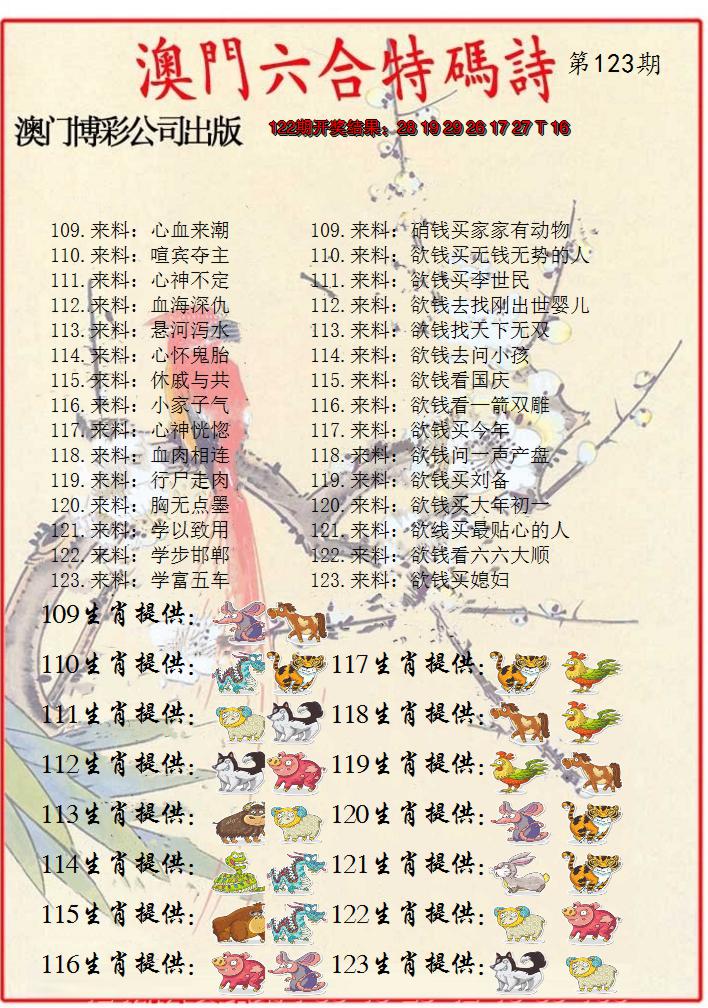 澳門六合特碼詩 第123期
澳门博彩公司出版 122期开奖结果：28 19 29 26 17 27 T 16
109.来料：心血来潮 109.来料：硝钱买家家有动物
110.来料：喧宾夺主 110.来料：欲钱买无钱无势的人
111.来料：心神不定 111.来料：欲钱买李世民
112.来料：血海深仇 112.来料：欲钱去找刚出世婴儿
113.来料：悬河泻水 113.来料：欲钱找天下无双
114.来料：心怀鬼胎 114.来料：欲钱去问小孩
115.来料：休戚与共 115.来料：欲钱看国庆
116.来料：小家子气 116.来料：欲钱看一箭双雕
117.来料：心神恍惚 117.来料：欲钱买今年
118.来料：血肉相连 118.来料：欲钱问一声产盘
119.来料：行尸走肉 119.来料：欲钱买刘备
120.来料：胸无点墨 120.来料：欲钱买大年初一
121.来料：学以致用 121.来料：欲线买最贴心的人
122.来料：学步邯郸 122.来料：欲钱看六六大顺
123.来料：学富五车 123.来料：欲钱买媳妇
109生肖提供：
110生肖提供： 117生肖提供：
111生肖提供： 118生肖提供：
112生肖提供： 119生肖提供：
113生肖提供： 120生肖提供：
114生肖提供： 121生肖提供：
115生肖提供： 122生肖提供：
116生肖提供： 123生肖提供：